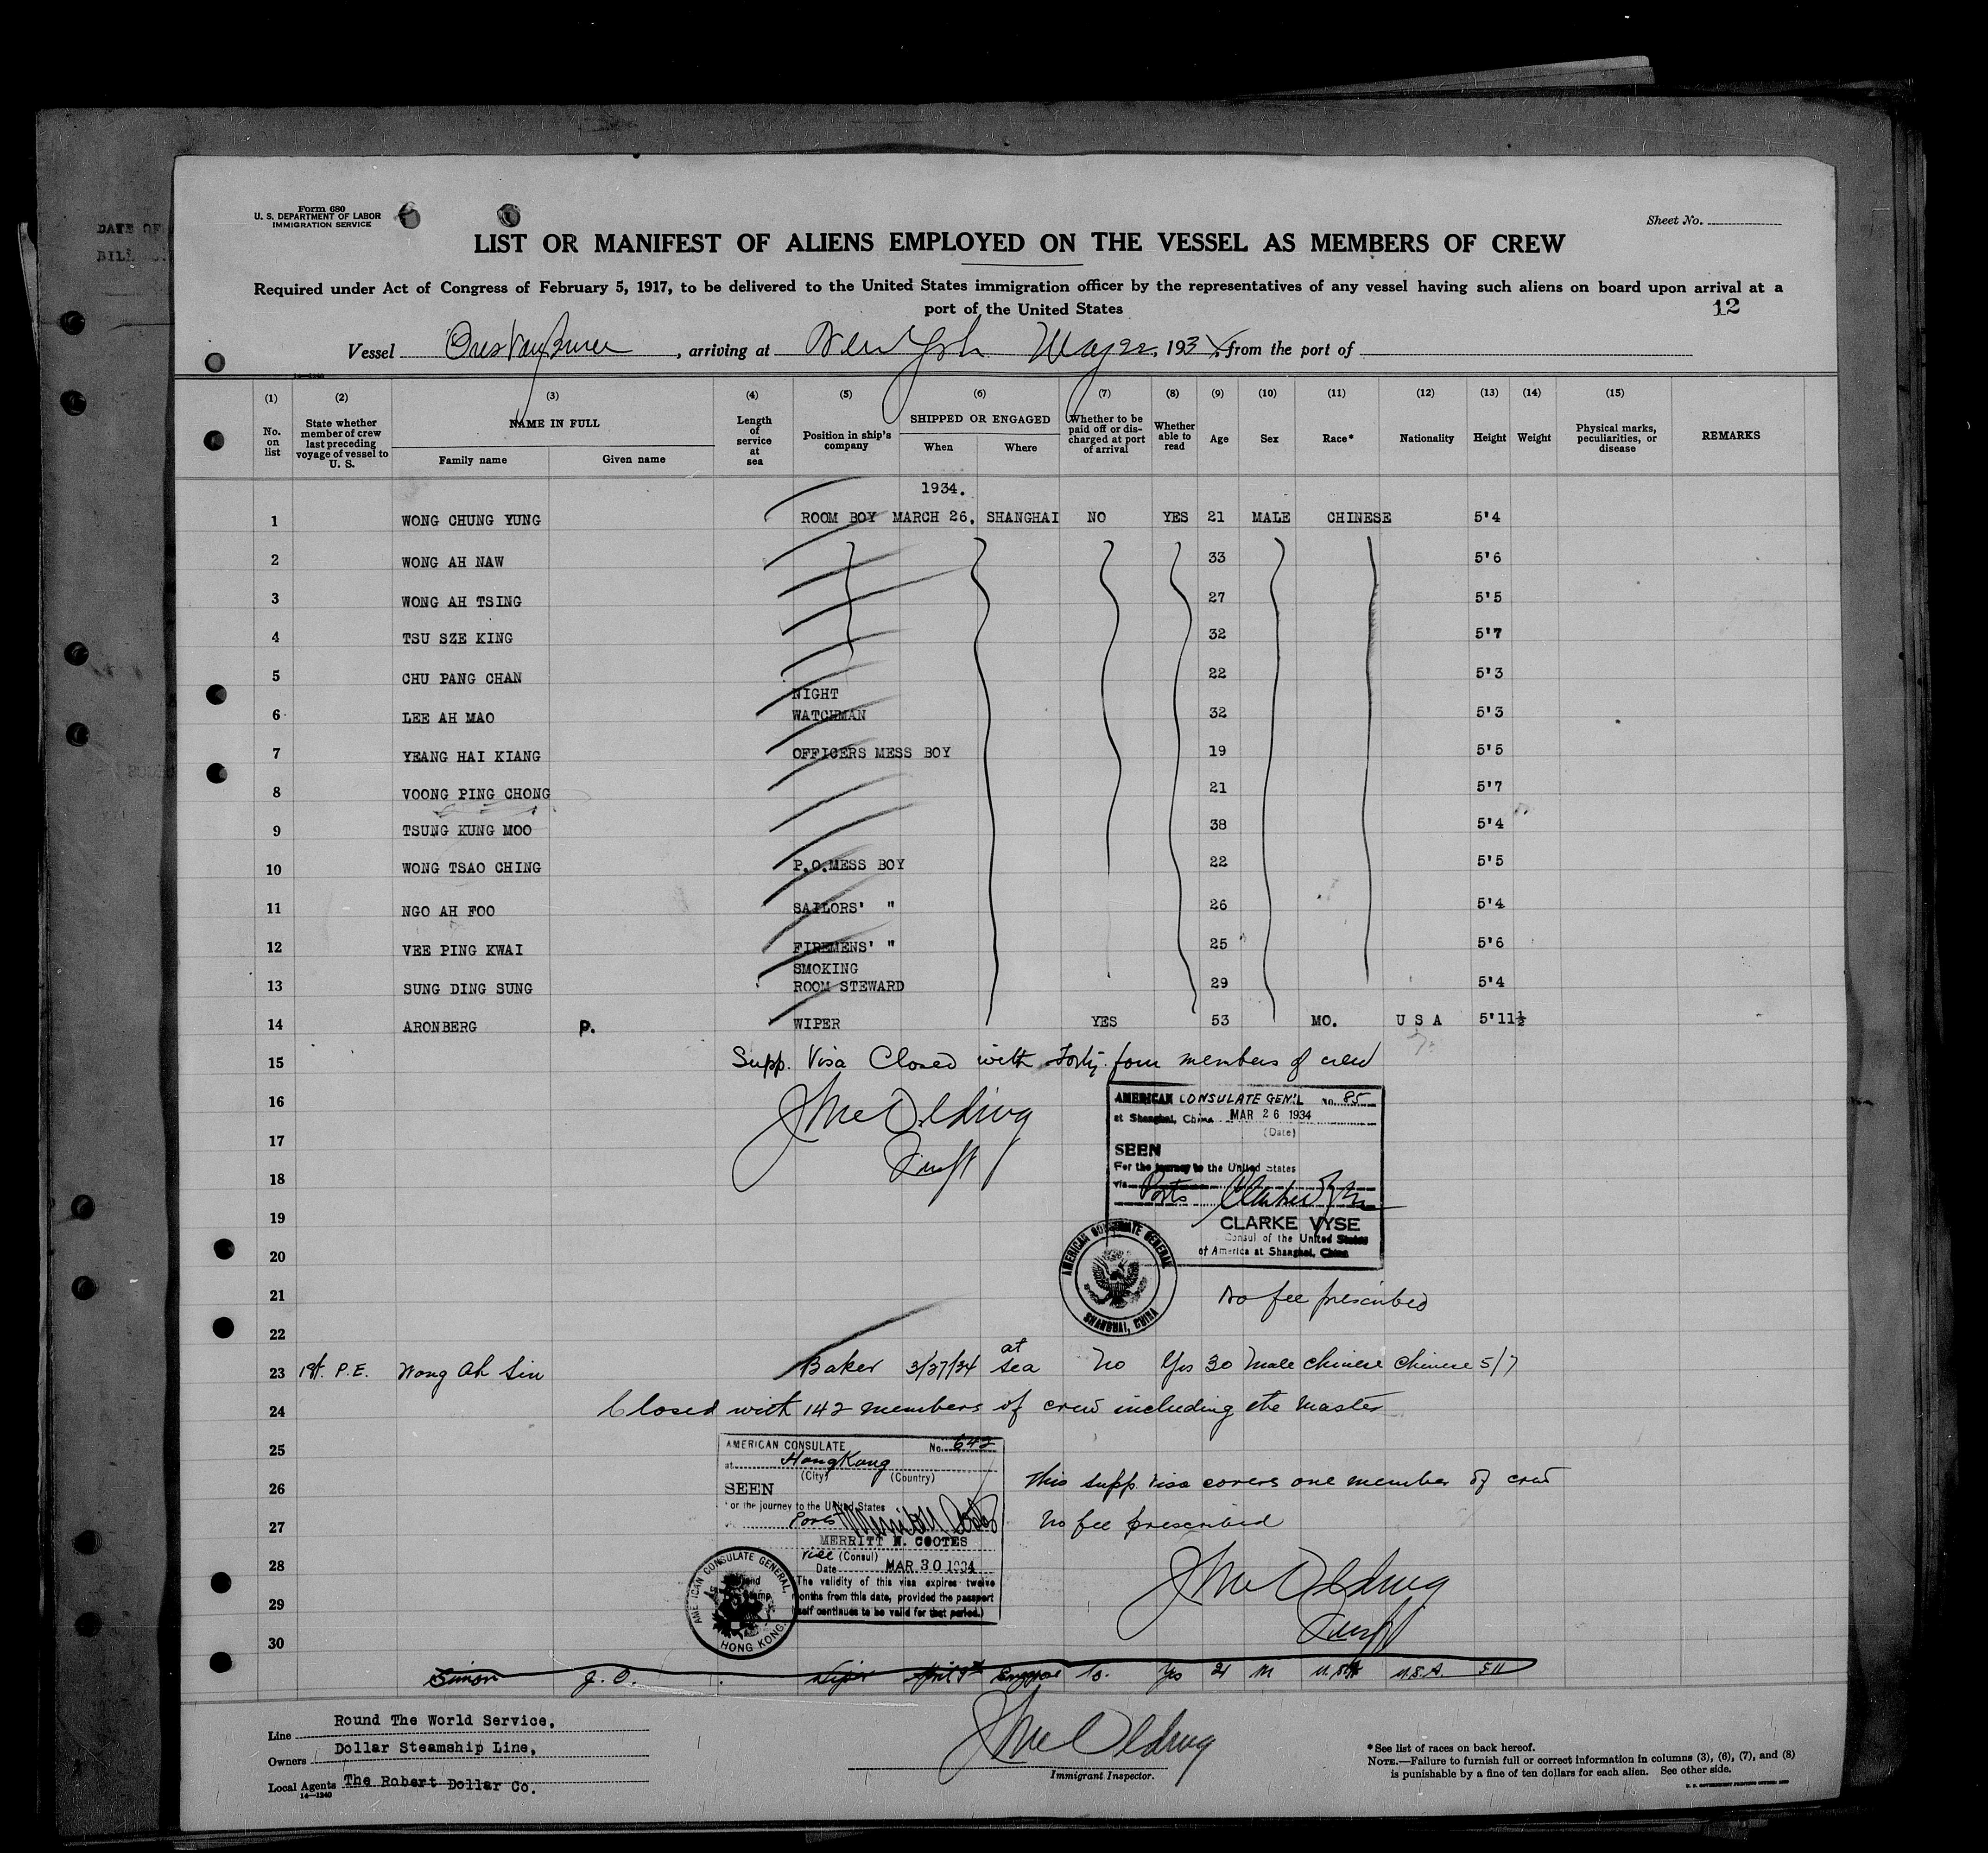 DATE OF
BILL
Form 680
U. S. DEPARTMENT OF LABOR
IMMIGRATION SERVICE
Sheet No.
LIST OR MANIFEST OF ALIENS EMPLOYED ON THE VESSEL AS MEMBERS OF CREW
Required under Act of Congress of February 5, 1917, to be delivered to the United States immigration officer by the representatives of any vessel having such aliens on board upon arrival at a
port of the United States
12
Vessel Pres Van Buren, arriving at New York May 22, 1934, from the port of
14—1240
(1) (2) (3) (4) (5) (6) (7) (8) (9) (10) (11) (12) (13) (14) (15)
No. on list State whether member of crew last preceding voyage of vessel to U. S. NAME IN FULL Family name Given name Length of service at sea Position in ship's company SHIPPED OR ENGAGED When Where Whether to be paid off or discharged at port of arrival Whether able to read Age Sex Race* Nationality Height Weight Physical marks, peculiarities, or disease REMARKS
1934.
1 WONG CHUNG YUNG ROOM BOY MARCH 26, SHANGHAI NO YES 21 MALE CHINESE 5'4
2 WONG AH NAW 33 5'6
3 WONG AH TSING 27 5'5
4 TSU SZE KING 32 5'7
5 CHU PANG CHAN 22 5'3
NIGHT
6 LEE AH MAO WATCHMAN 32 5'3
7 YEANG HAI KIANG OFFICERS MESS BOY 19 5'5
8 VOONG PING CHONG 21 5'7
9 TSUNG KUNG MOO 38 5'4
10 WONG TSAO CHING P.O.MESS BOY 22 5'5
11 NGO AH FOO SAILORS' " 26 5'4
12 VEE PING KWAI FIREMENS' " 25 5'6
SMOKING
13 SUNG DING SUNG ROOM STEWARD 29 5'4
14 ARONBERG P. WIPER YES 53 MO. U S A 5'11½
15 Supp. Visa Closed with Forty-four members of crew
16 AMERICAN CONSULATE GEN'L No. 85
at Shanghai, China MAR 26 1934
17 (Date)
SEEN
18 For the journey to the United States
via Ports
19 CLARKE VYSE
Consul of the United States
20 of America at Shanghai, China
AMERICAN CONSULATE GENERAL
SHANGHAI, CHINA
21 No fee prescribed
22
23 1st. P.E. Wong Ah Sin Baker 3/27/34 at sea No Yes 30 Male Chinese Chinese 5/7
24 Closed with 142 members of crew including the Master
25 AMERICAN CONSULATE No. 642
at HongKong
(City) (Country)
26 SEEN This supp. visa covers one member of crew
For the journey to the United States
27 Ports No fee prescribed
MERRITT N. COOTES
28 Vice (Consul)
Date MAR 30 1934
The validity of this visa expires twelve
29 months from this date, provided the passport
itself continues to be valid for that period.)
AMERICAN CONSULATE GENERAL,
HONG KONG.
30
Simon J. O. Wiper April 9th No. Yes 21 M U.S.A. U.S.A. 5 11
Line Round The World Service,
Owners Dollar Steamship Line,
Local Agents The Robert Dollar Co.
14—1240
Immigrant Inspector.
*See list of races on back hereof.
NOTE.—Failure to furnish full or correct information in columns (3), (6), (7), and (8)
is punishable by a fine of ten dollars for each alien. See other side.